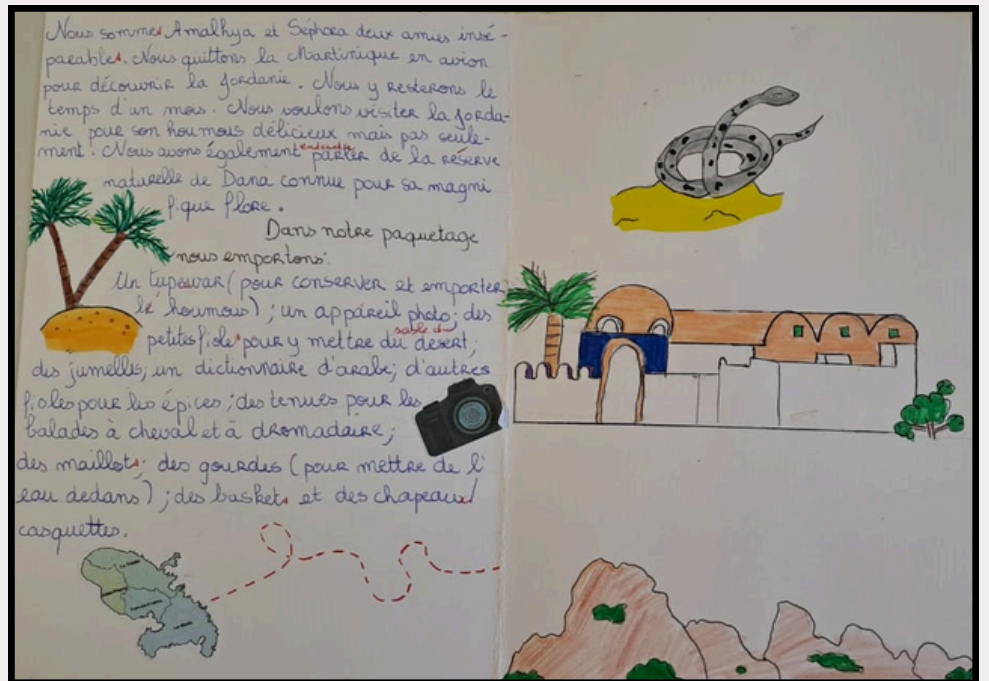 Nous sommes Amalhya et Séphora deux amies insé-
parables. Nous quittons la Martinique en avion
pour découvrir la Jordanie. Nous y resterons le
temps d'un mois. Nous voulons visiter la Jorda-
nie pour son houmous délicieux mais pas seule-
ment. Nous avons également entendu parler de la réserve
naturelle de Dana connue pour sa magni
fique flore.
Dans notre paquetage
nous emportons:
Un tupewar (pour conserver et emporter
le houmous) ; un appareil photo; des
petites fioles pour y mettre du sable du désert;
des jumelles; un dictionnaire d'arabe; d'autres
fioles pour les épices ; des tenues pour les
balades à cheval et à dromadaire;
des maillots; des gourdes (pour mettre de l'
eau dedans) ; des baskets et des chapeaux/
casquettes.